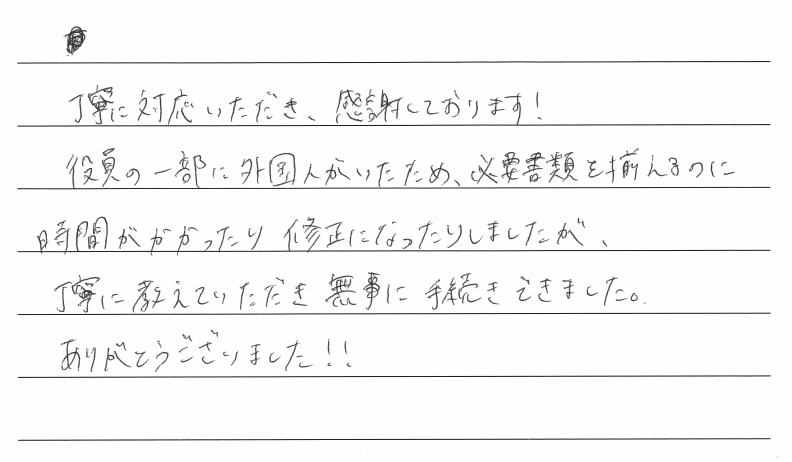 丁寧に対応いただき、感謝しております!
役員の一部に外国人がいたため、必要書類を揃えるのに
時間がかかったり修正になったりしましたが、
丁寧に教えていただき無事に手続きできました。
ありがとうございました!!